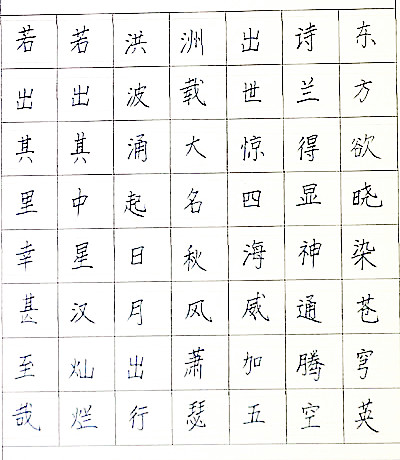 东方欲晓染苍穹英
诗兰得显神通腾空
出世惊四海威加五
洲载大名秋风萧瑟
洪波涌起日月出行
若出其中星汉灿烂
若出其里幸甚至哉